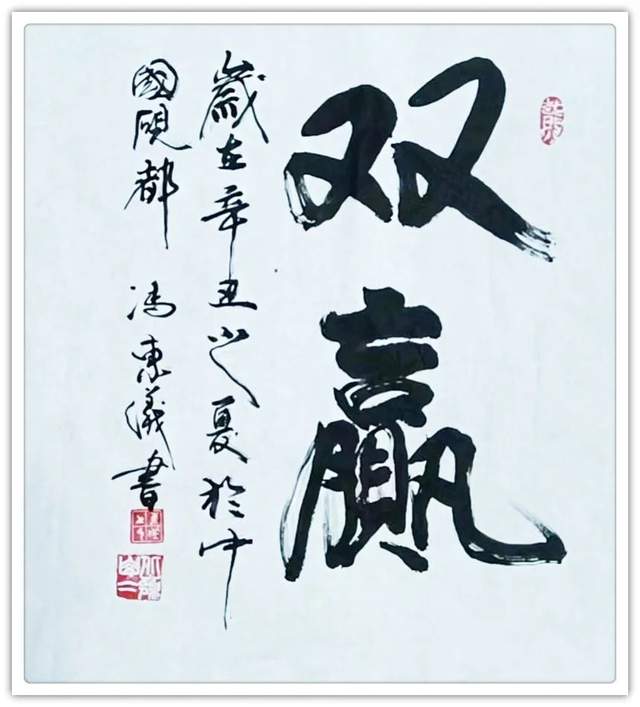 双贏
歲在辛丑之夏於中
國硯都 馮東儀書